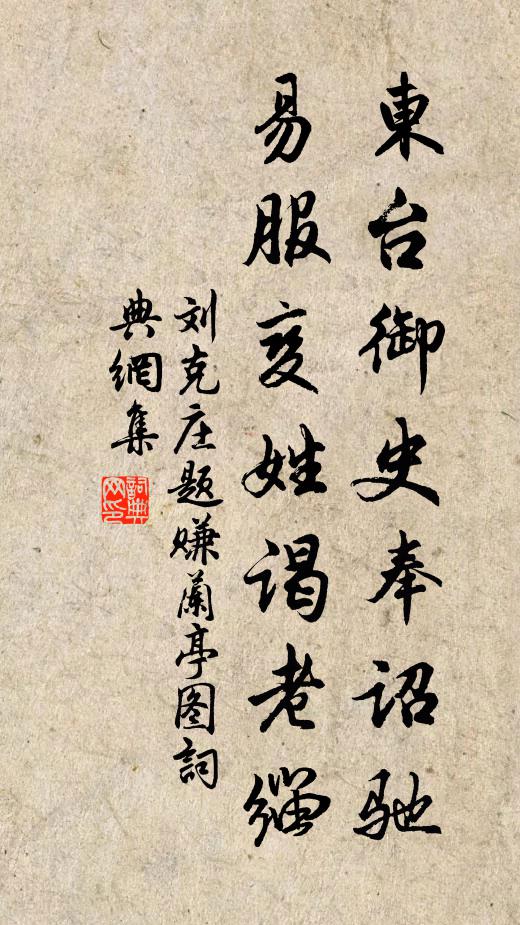 東台御史奉诏驰
易服变姓谒老缁
刘克庄题赚蘭亭图詞
典網集
詞典
网印